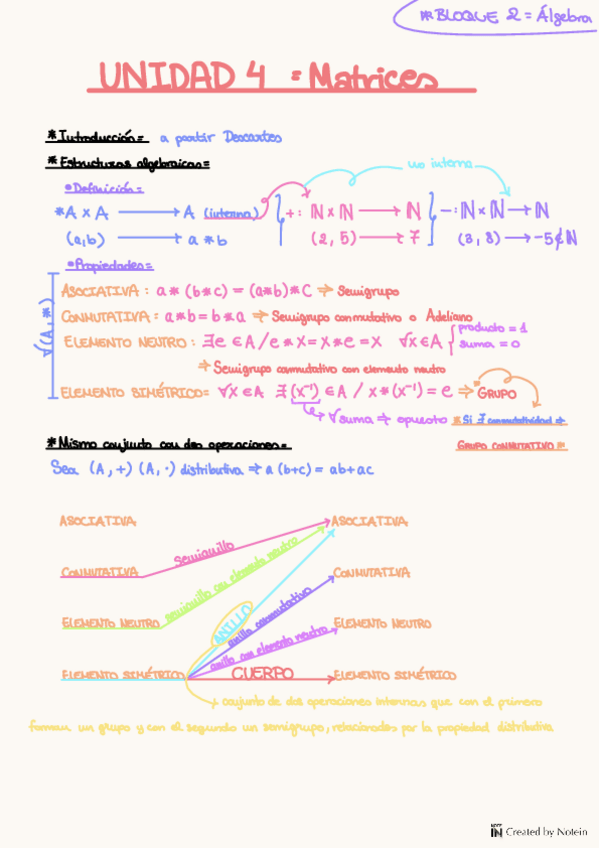 *BLOQUE 2 = Álgebra
UNIDAD 4 = Matrices
*Introducción= a partir Descartes
*Estructuras algebraicas=
no interna
•Definición=
*A x A → A (interna) +: ℕ x ℕ → ℕ -: ℕ x ℕ → ℕ
(a,b) → a * b (2, 5) → 7 (3, 8) → -5 ∉ ℕ
•Propiedades=
∀(A,*)
ASOCIATIVA: a * (b * c) = (a * b) * C ⇒ Semigrupo
CONMUTATIVA: a * b = b * a ⇒ Semigrupo conmutativo o Adeliano
ELEMENTO NEUTRO: ∃e ∈ A / e * X = X * e = X ∀X ∈ A producto = 1
suma = 0
⇒ Semigrupo conmutativo con elemento neutro
ELEMENTO SIMÉTRICO= ∀X ∈ A ∃(x⁻¹) ∈ A / X * (x⁻¹) = e ⇒ GRUPO
∀suma ⇒ opuesto *Si ∃ conmutatividad ⇒
GRUPO CONMUTATIVO*
*Mismo conjunto con dos operaciones=
Sea (A, +) (A, ·) distributiva ⇒ a (b+c) = ab + ac
ASOCIATIVA ASOCIATIVA
semianillo
CONMUTATIVA CONMUTATIVA
semianillo con elemento neutro
ELEMENTO NEUTRO ELEMENTO NEUTRO
ANILLO
anillo conmutativo
anillo con elemento neutro
ELEMENTO SIMÉTRICO CUERPO ELEMENTO SIMÉTRICO
conjunto de dos operaciones internas que con el primero
forman un grupo y con el segundo un semigrupo, relacionados por la propiedad distributiva
NOTE IN Created by Notein